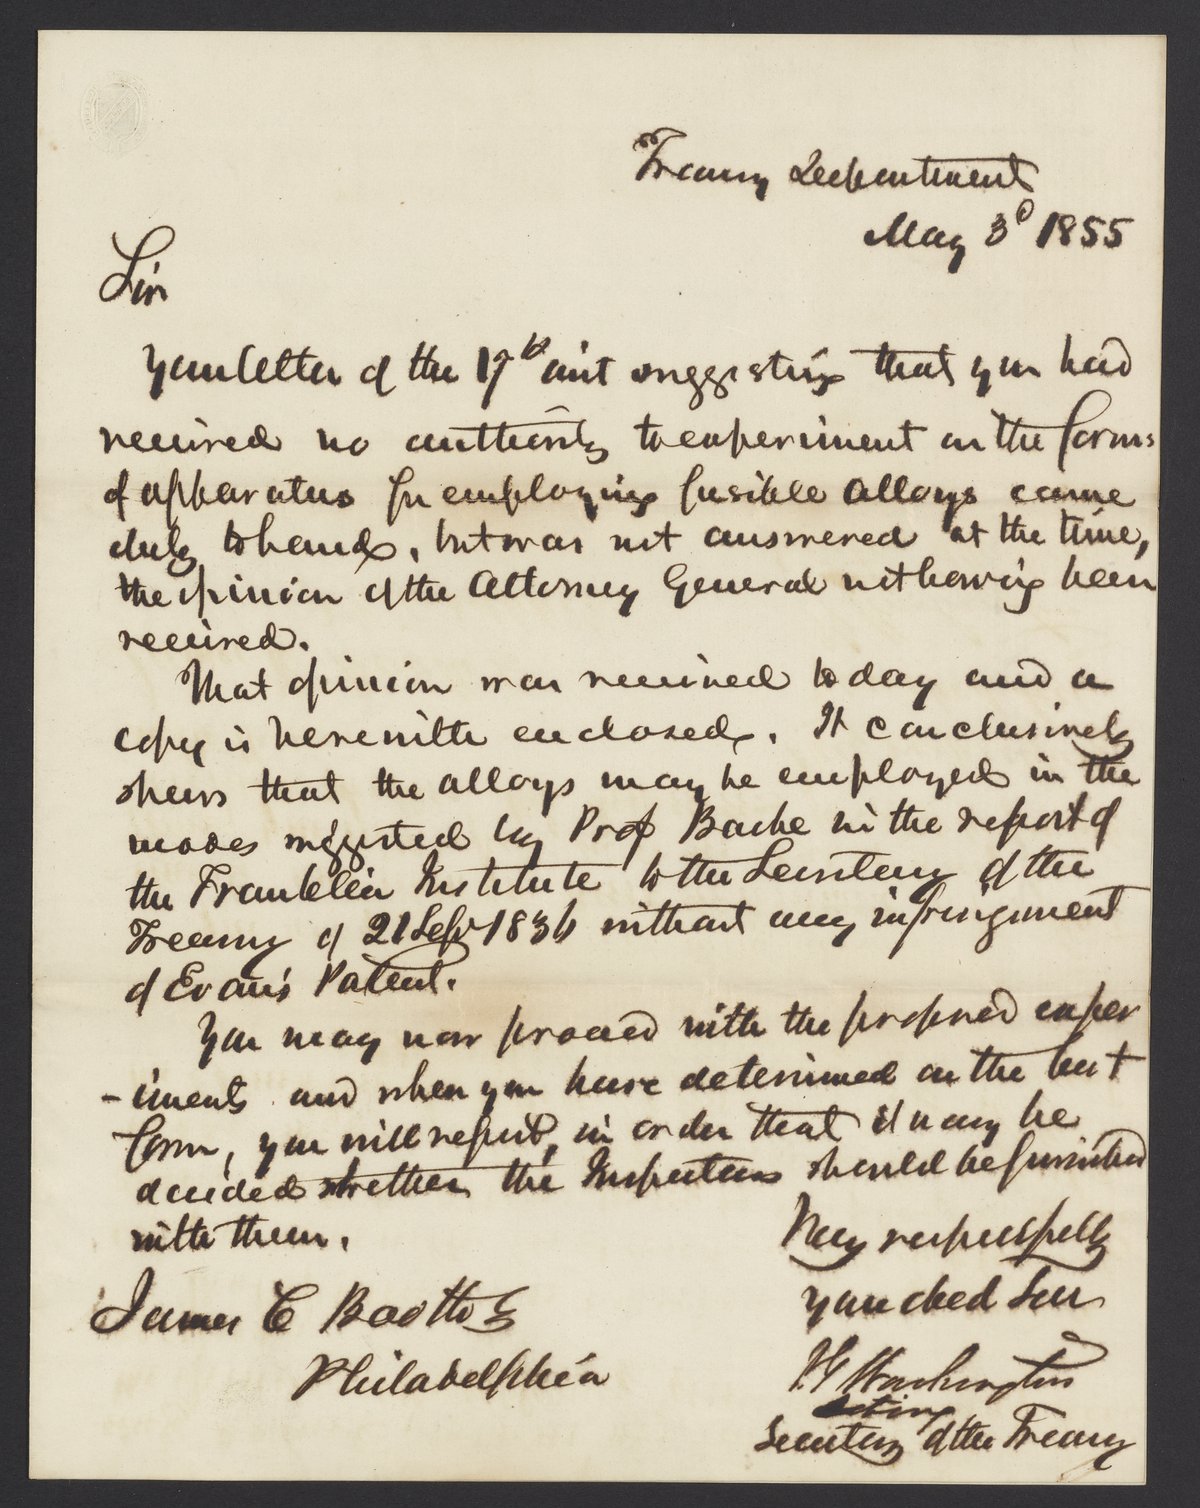 Treasury Department
May 3d 1855
Sir
Your letter of the 17th ult suggesting that you had
received no authority to experiment on the forms
of apparatus for employing fusible alloys came
duly to hand, but was not answered at the time,
the opinion of the Attorney General not having been
received.
That opinion was received to day and a
copy is herewith enclosed. It conclusively
shews that the alloys may be employed in the
modes suggested by Prof Bache in the report of
the Franklin Institute to the Secretary of the
Treasury of 21 Sep 1836 without any infringement
of Evans Patent.
You may now proceed with the proposed exper
-iments and when you have determined on the best
form, you will report, in order that it may be
decided whether the Inspectors should be furnished
with them.
Very respectfully
your obed Ser
James C Booth
Philadelphia
P G Washington
Acting
Secretary of the Treasury